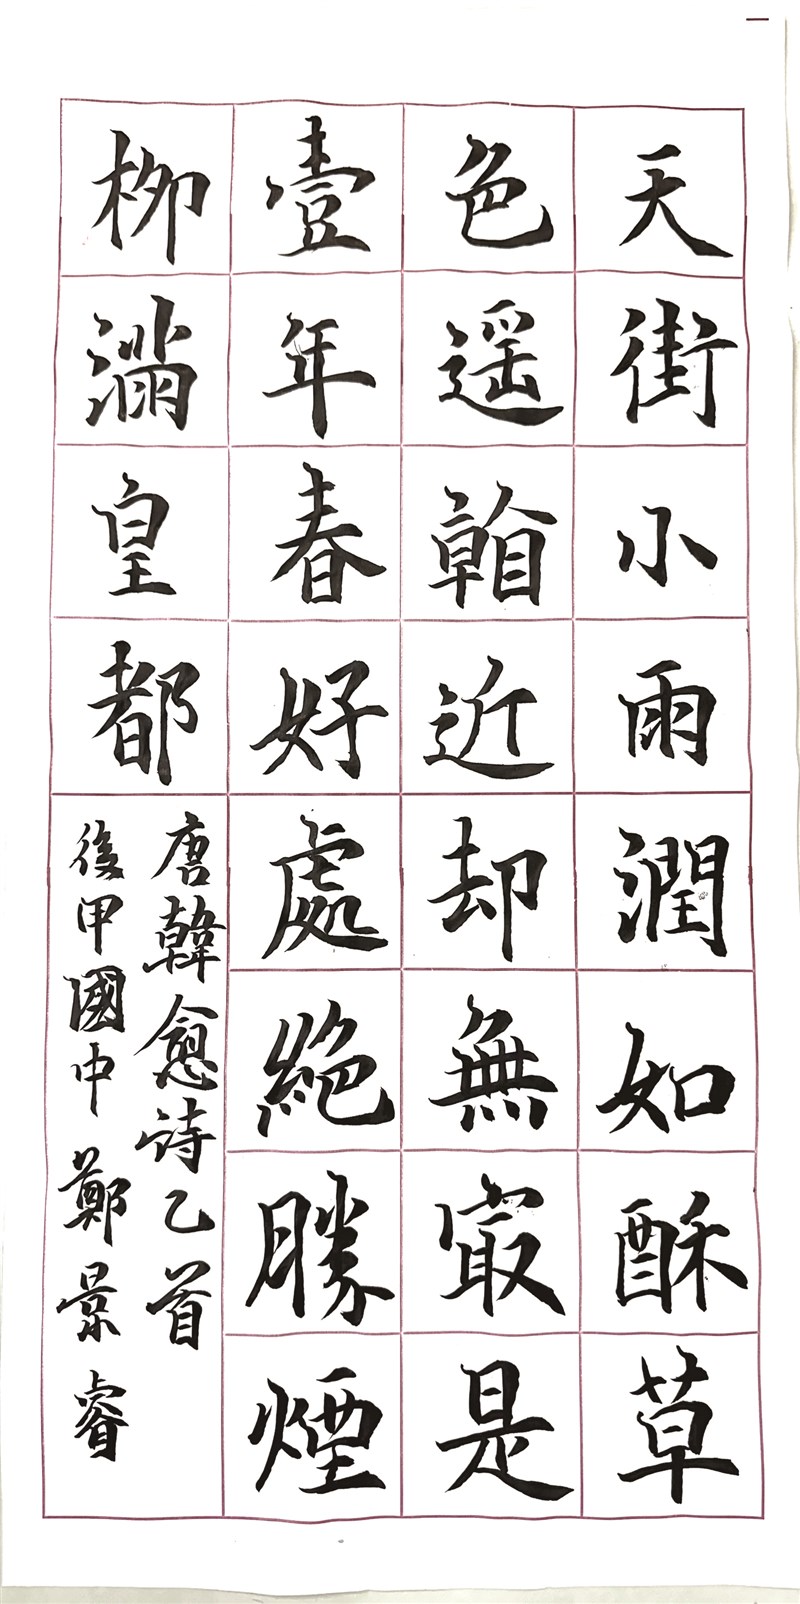 天街小雨潤如酥草
色遥看近却無最是
壹年春好處絶勝煙
柳滿皇都
唐韓愈诗乙首
後甲國中鄭景睿